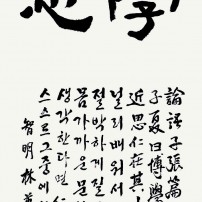 論語子張篇
子夏曰博學
近思仁在其
널리 배워서
절박하게 질
몸 가까운 문
생각한다면
스스로 그 중에
智明 林